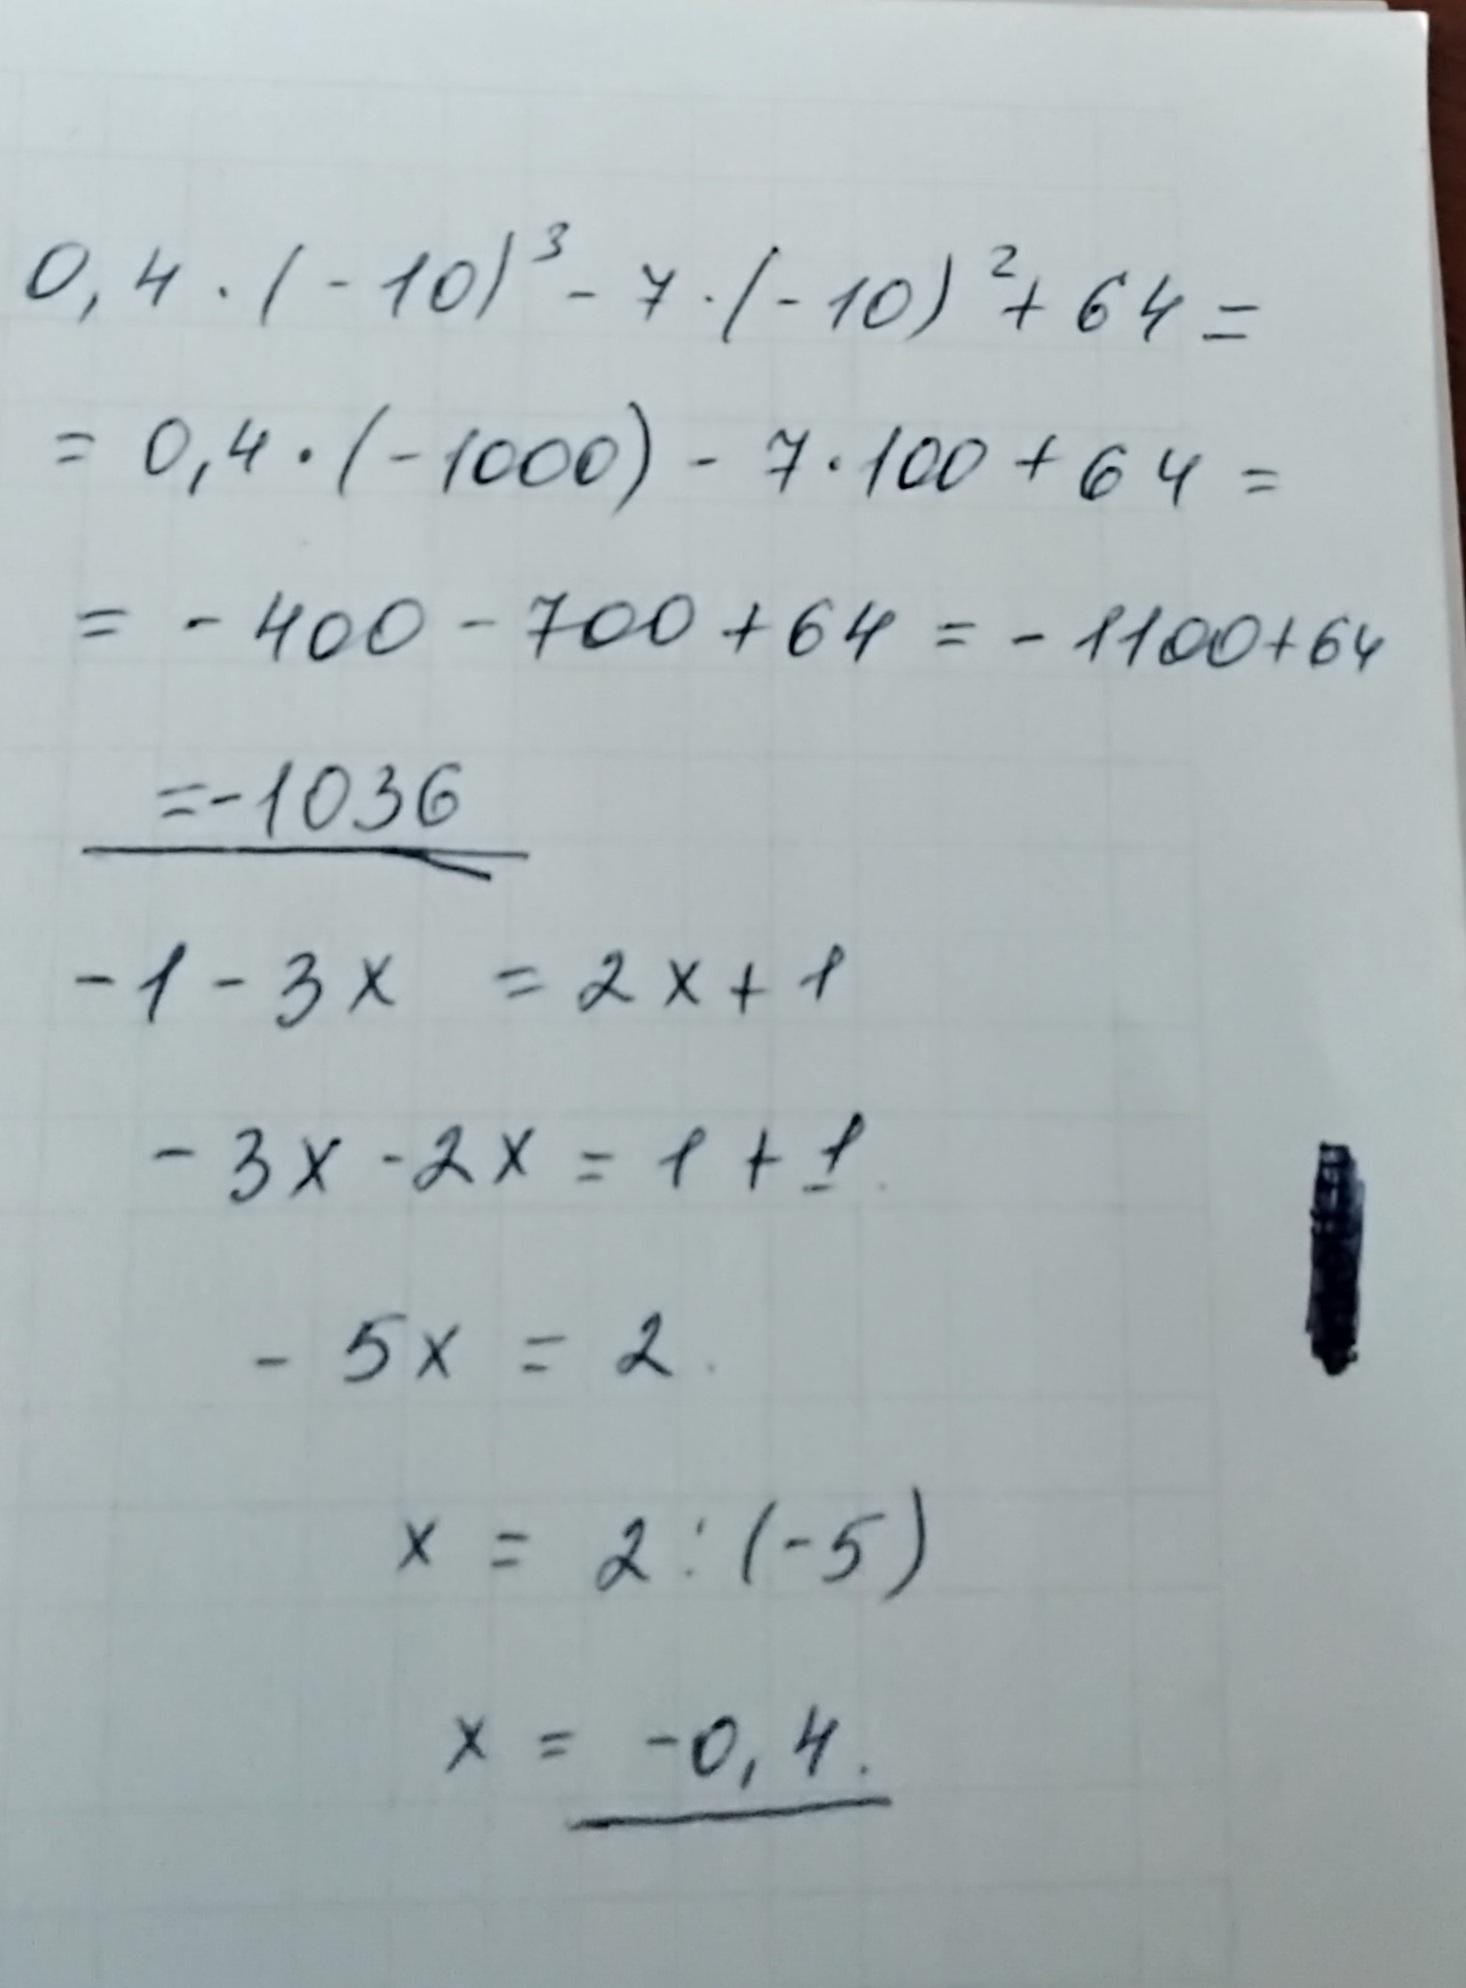 0,4 · (-10)³ - 7 · (-10)² + 64 =
= 0,4 · (-1000) - 7 · 100 + 64 =
= - 400 - 700 + 64 = - 1100 + 64
= -1036
-1 - 3x = 2x + 1
- 3x - 2x = 1 + 1.
- 5x = 2.
x = 2 : (-5)
x = -0,4.